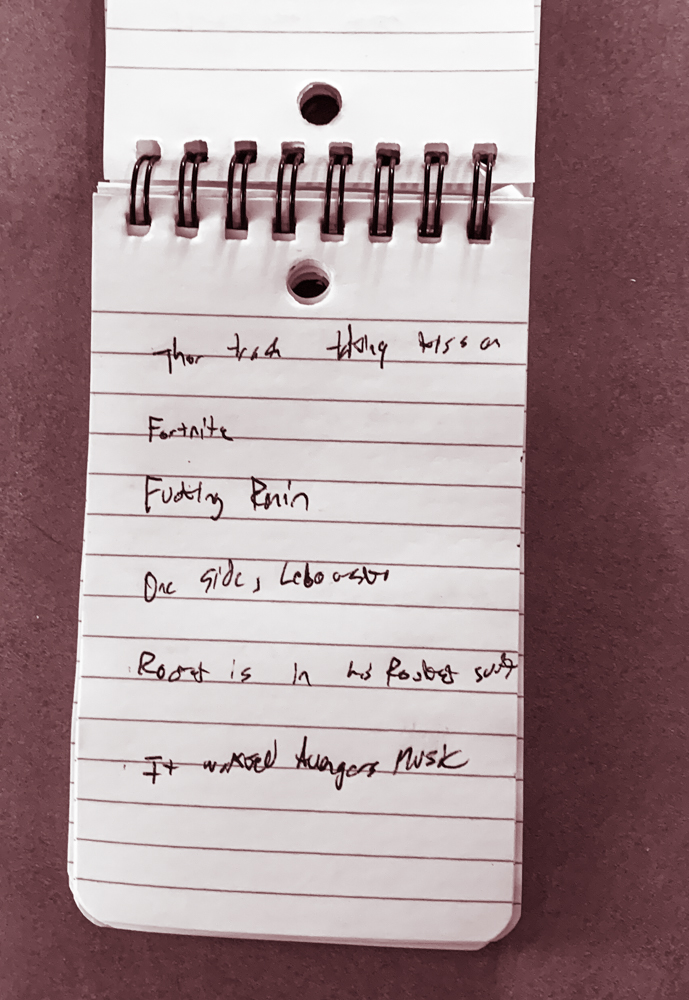 Thor trash talking kids on
Fortnite
Fucking Ronin
One side, Lebowski
Rocket is in his Rocket suit
It worked Avengers Music